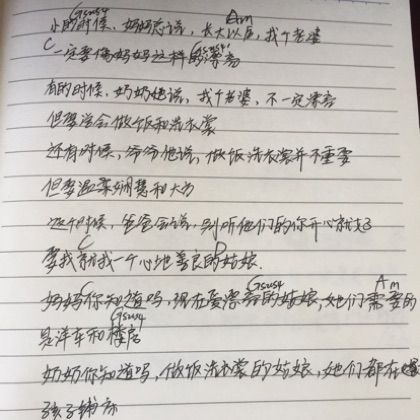 Gsus4 Am
小的时候，妈妈总说，长大以后，找个老婆
C Gsus4
一定要像妈妈这样的漂亮
有的时候，奶奶她说，找个老婆，不一定漂亮
但要学会做饭和洗衣裳
还有时候，爷爷他说，做饭洗衣裳并不重要
但要温柔娴慧和大方
这个时候，爸爸会说，别听他们的你开心就好了
C D
要找就找一个心地善良的姑娘.
C Gsus4 Am
妈妈你知道吗，现在爱漂亮的姑娘，她们需要的
Gsus4
是洋车和楼房
奶奶你知道吗，做饭洗衣裳的姑娘，她们都在
孩子